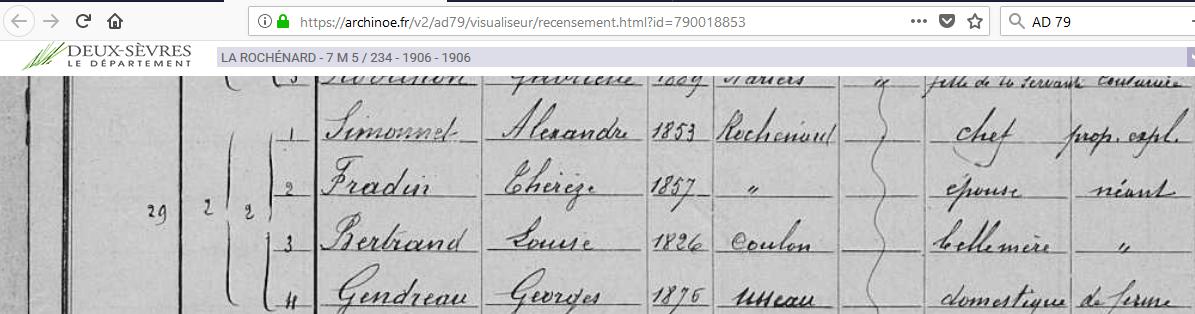 https://archinoe.fr/v2/ad79/visualiseur/recensement.html?id=790018853 AD 79
DEUX-SÈVRES
LE DÉPARTEMENT
LA ROCHÉNARD - 7 M 5 / 234 - 1906 - 1906
3 1889 " fille de la servante couturière
1 Simonnet Alexandre 1853 Rochenard chef prop. expl.
2 Fradin Thérèze 1857 " épouse néant
29 2 2
3 Bertrand Louise 1826 Coulon bellemère "
4 Gendreau Georges 1876 Usseau domestique de ferme